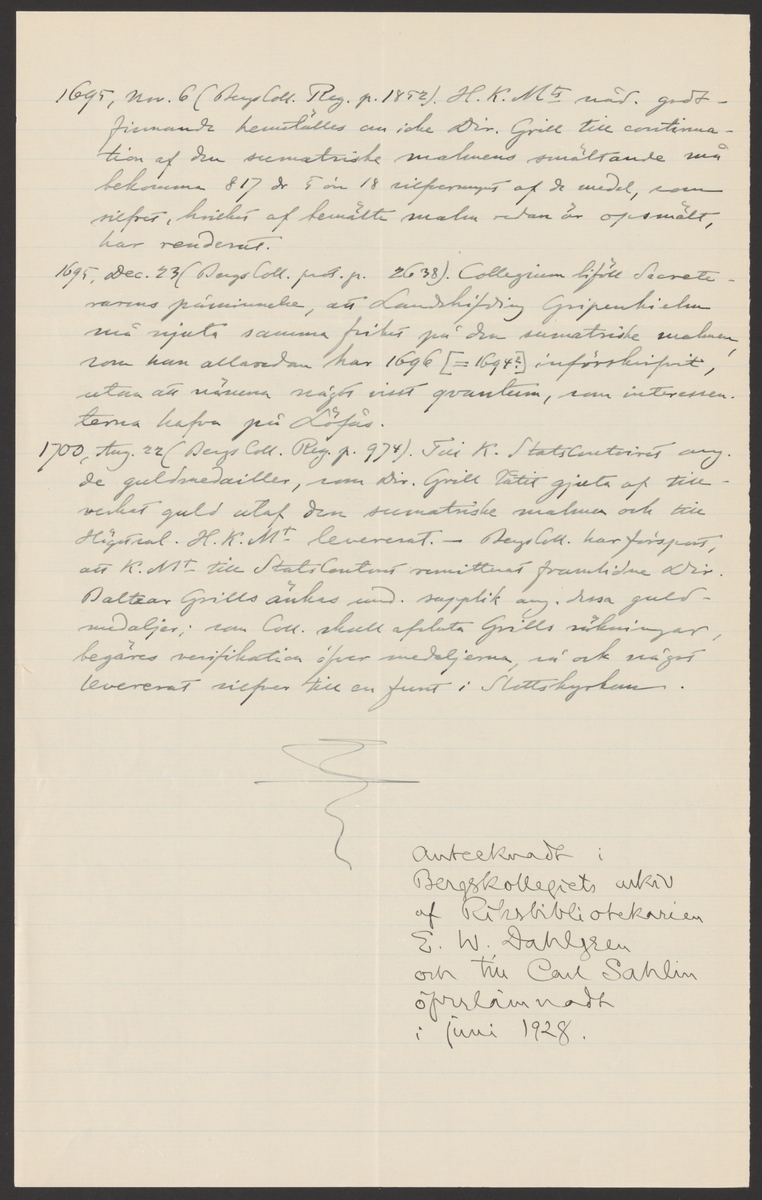 1695, Nov. 6 (BergsColl. Reg. p. 1852). H. K. Mts nåd. godt-
finnande hemställes om icke Dir. Grill till continua-
tion af den sumatriske malmens smältande må
bekomma 817 dr 5 ör 18 silfvermynt af de medel, som
silfret, hvilket af bemälte malm redan är opsmält,
har renderat.
1695, Dec. 23 (BergsColl. prot. p. 2638). Collegium biföll Secrete-
rarens påminnelse, att Landshöfding Gripenhielm
må njuta samma frihet på den sumatriske malmen,
som han allaredan har 1696 [= 1694?] införskrifvit,
utan att nämna något visst qvantum, som interessen-
terna hafva på Löfås.
1700, Aug. 22 (BergsColl. Reg. p. 974). Till K. StatsContoiret ang.
de guldmedailler, som Dir. Grill låtit gjuta af till-
verkat guld utaf den sumatriske malmen och till
Högstsal. H. K. Mt levererat. — BergsColl. har försport,
att K. Mt till StatsContoret remitterat framlidne Dir.
Baltzar Grills änkas und. supplik ang. dessa guld-
medaljer; som Coll. skall afsluta Grills räkningar,
begäres verifikation öfver medaljerna, så ock något
levererat silfver till en funt i Slottskyrkan.
Anteeknadt i
Bergskollegiets arkiv
af Riksbibliotekarien
E. W. Dahlgren
och till Carl Sahlin
öfverlämnadt
i juni 1928.